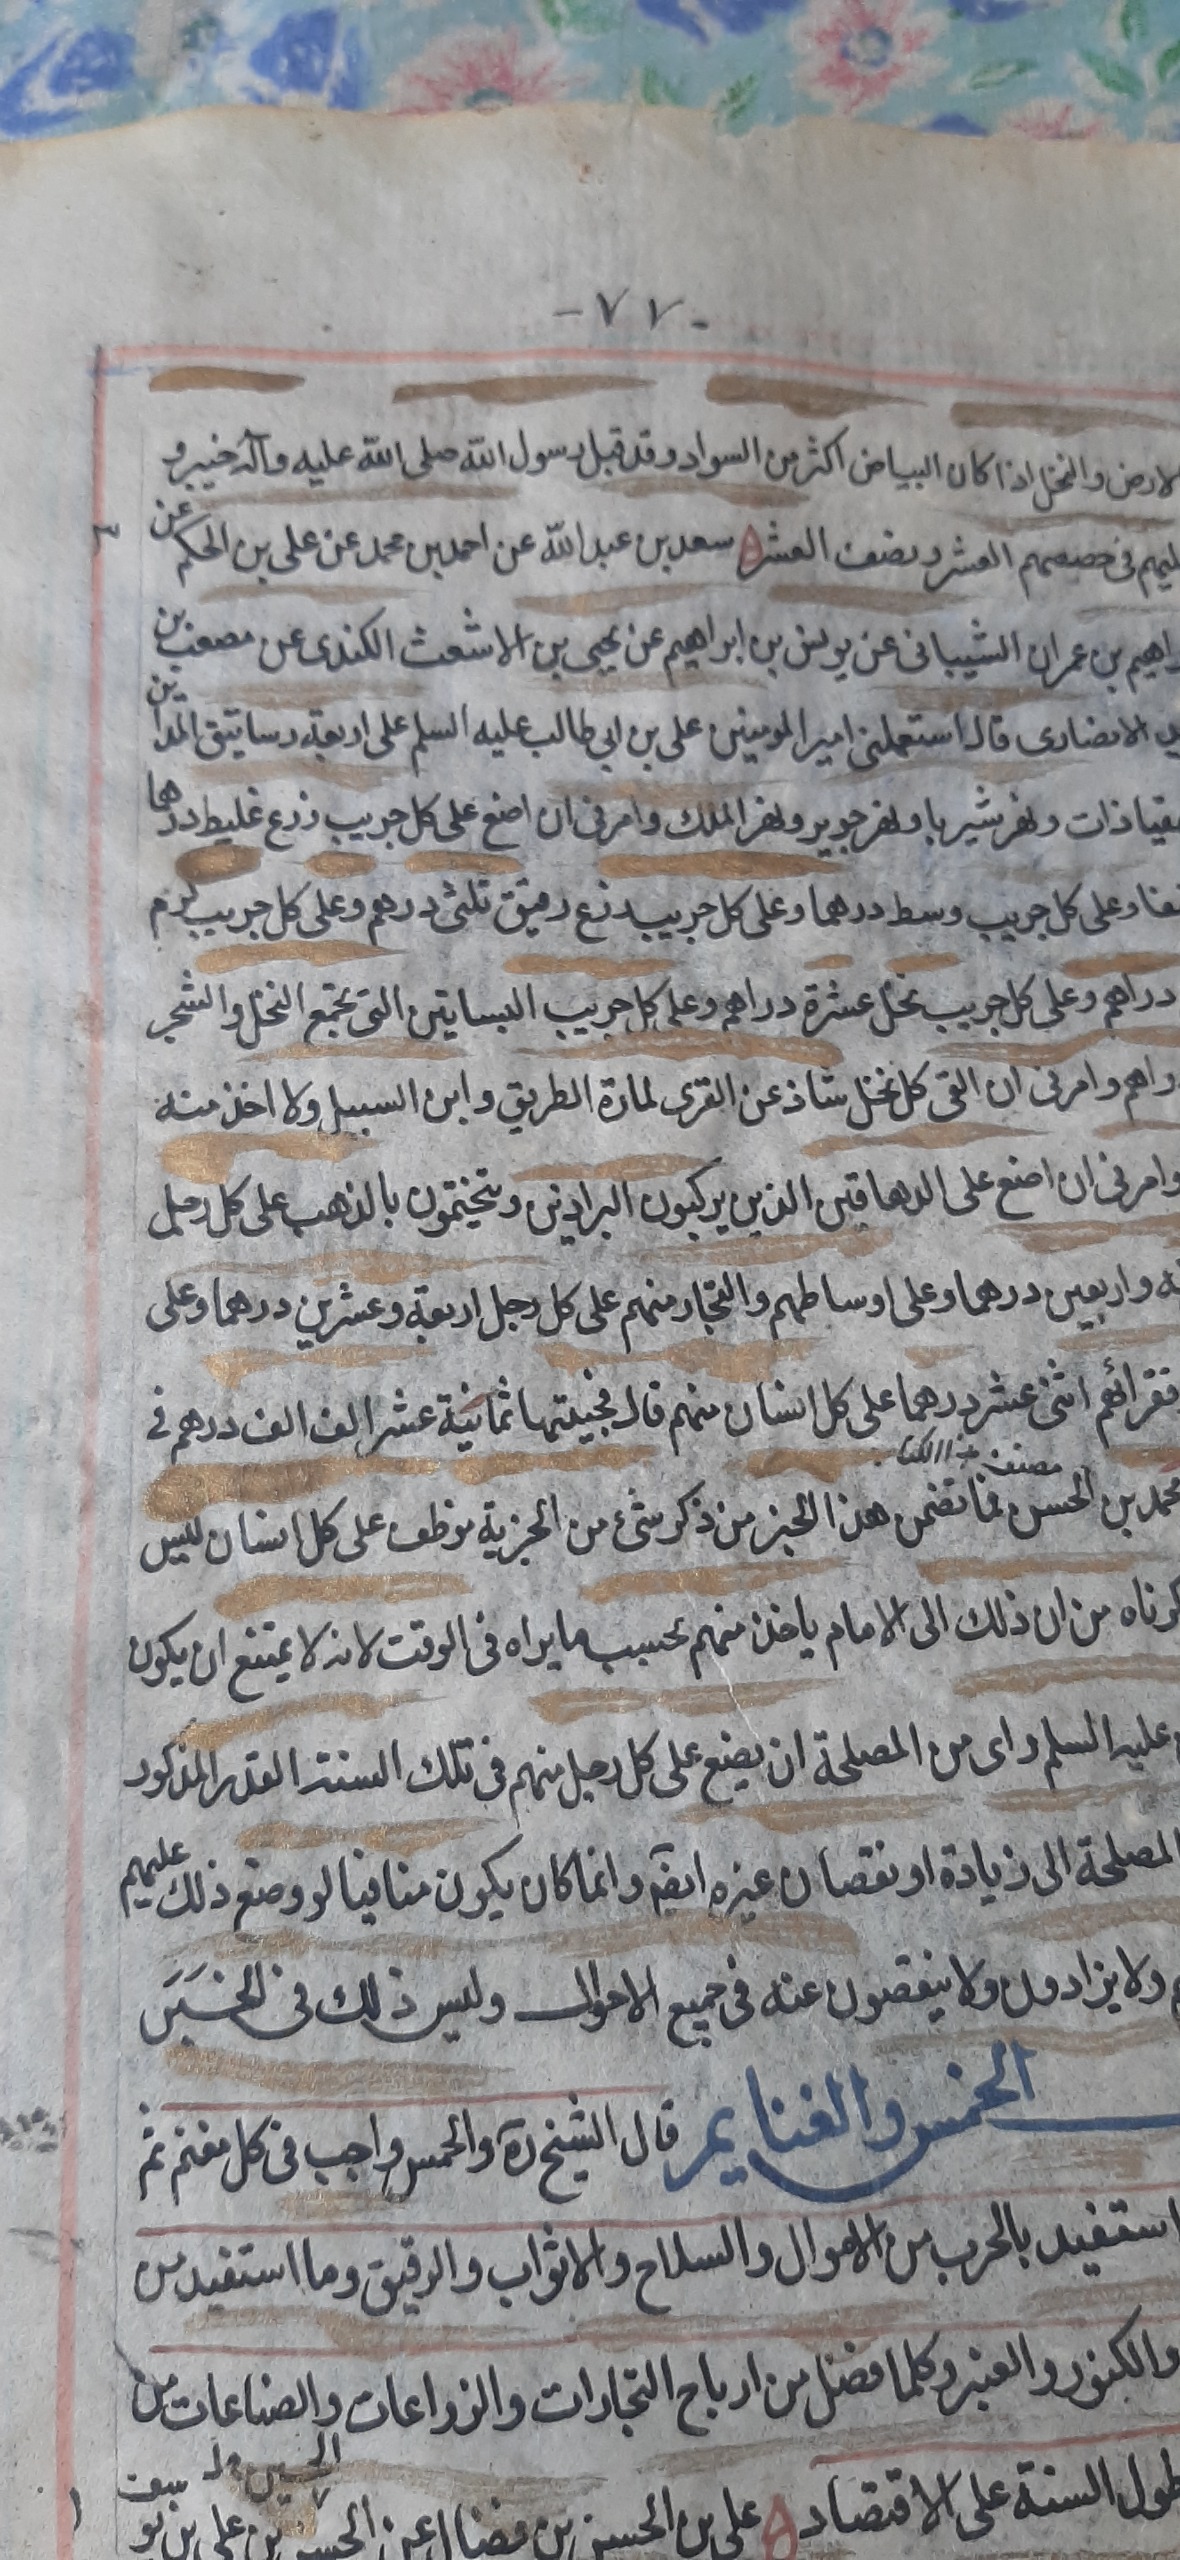 - ٧٧ -
الارض والنخل اذا كان البياض اكثر من السواد وقد قبل رسول الله صلى الله عليه وآله خيبر و
عليهم فى حصصهم العشر ونصف العشر سعد بن عبد الله عن احمد بن محمد عن على بن الحكم عن
ابراهيم بن عمران الشيبانى عن يونس بن ابراهيم عن يحيى بن الاشعث الكندى عن مصعب بن
الانصارى قال استعملنى امير المومنين على بن ابى طالب عليه السلم على اربعة رساتيق المداين
ونهر شير يا ونهر جوير ونهر الملك وامرنى ان اضع على كل جريب زرع غليظ درهما
وعلى كل جريب وسط درهما وعلى كل جريب زرع رقيق ثلثى درهم وعلى كل جريب كرم
دراهم وعلى كل جريب نخل عشرة دراهم وعلى كل جريب البساتين التى تجمع النخل والشجر
دراهم وامرنى ان القى كل نخل شاذ عن القرى لمارة الطريق وابن السبيل ولا اخذ منه
وامرنى ان اضع على الدهاقين الذين يركبون البراذين ويتختمون بالذهب على كل رجل
واربعين درهما وعلى اوساطهم والتجار منهم على كل رجل اربعة وعشرين درهما وعلى
فقرائهم اثنى عشر درهما على كل انسان منهم قال فجبيتها ثمانية عشر الف الف درهم فى
مصنف هذا الكتاب
محمد بن الحسن فما تضمن هذا الخبر من ذكر شئ من الجزية موظف على كل انسان ليس
ذكرناه من ان ذلك الى الامام ياخذ منهم بحسب ما يراه فى الوقت لانه لا يمتنع ان يكون
عليه السلم راى من المصلحة ان يضع على كل رجل منهم فى تلك السنة القدر المذكور
المصلحة الى زيادة او نقصان غيره ايضا وانما كان يكون منافيا لو وضع ذلك عليهم
ولا يزادون ولا ينقصون عنه فى جميع الاحوال وليس ذلك فى الخبر
الخمس والغنايم قال الشيخ ره والخمس واجب فى كل مغنم ثم
استفيد بالحرب من الاموال والسلاح والاثواب والرقيق وما استفيد من
والكنوز والعنبر وكلما فضل من ارباح التجارات والزراعات والصناعات من
الحسين
طول السنة على الاقتصاد على بن الحسن بن فضال عن الحسن بن على بن يو